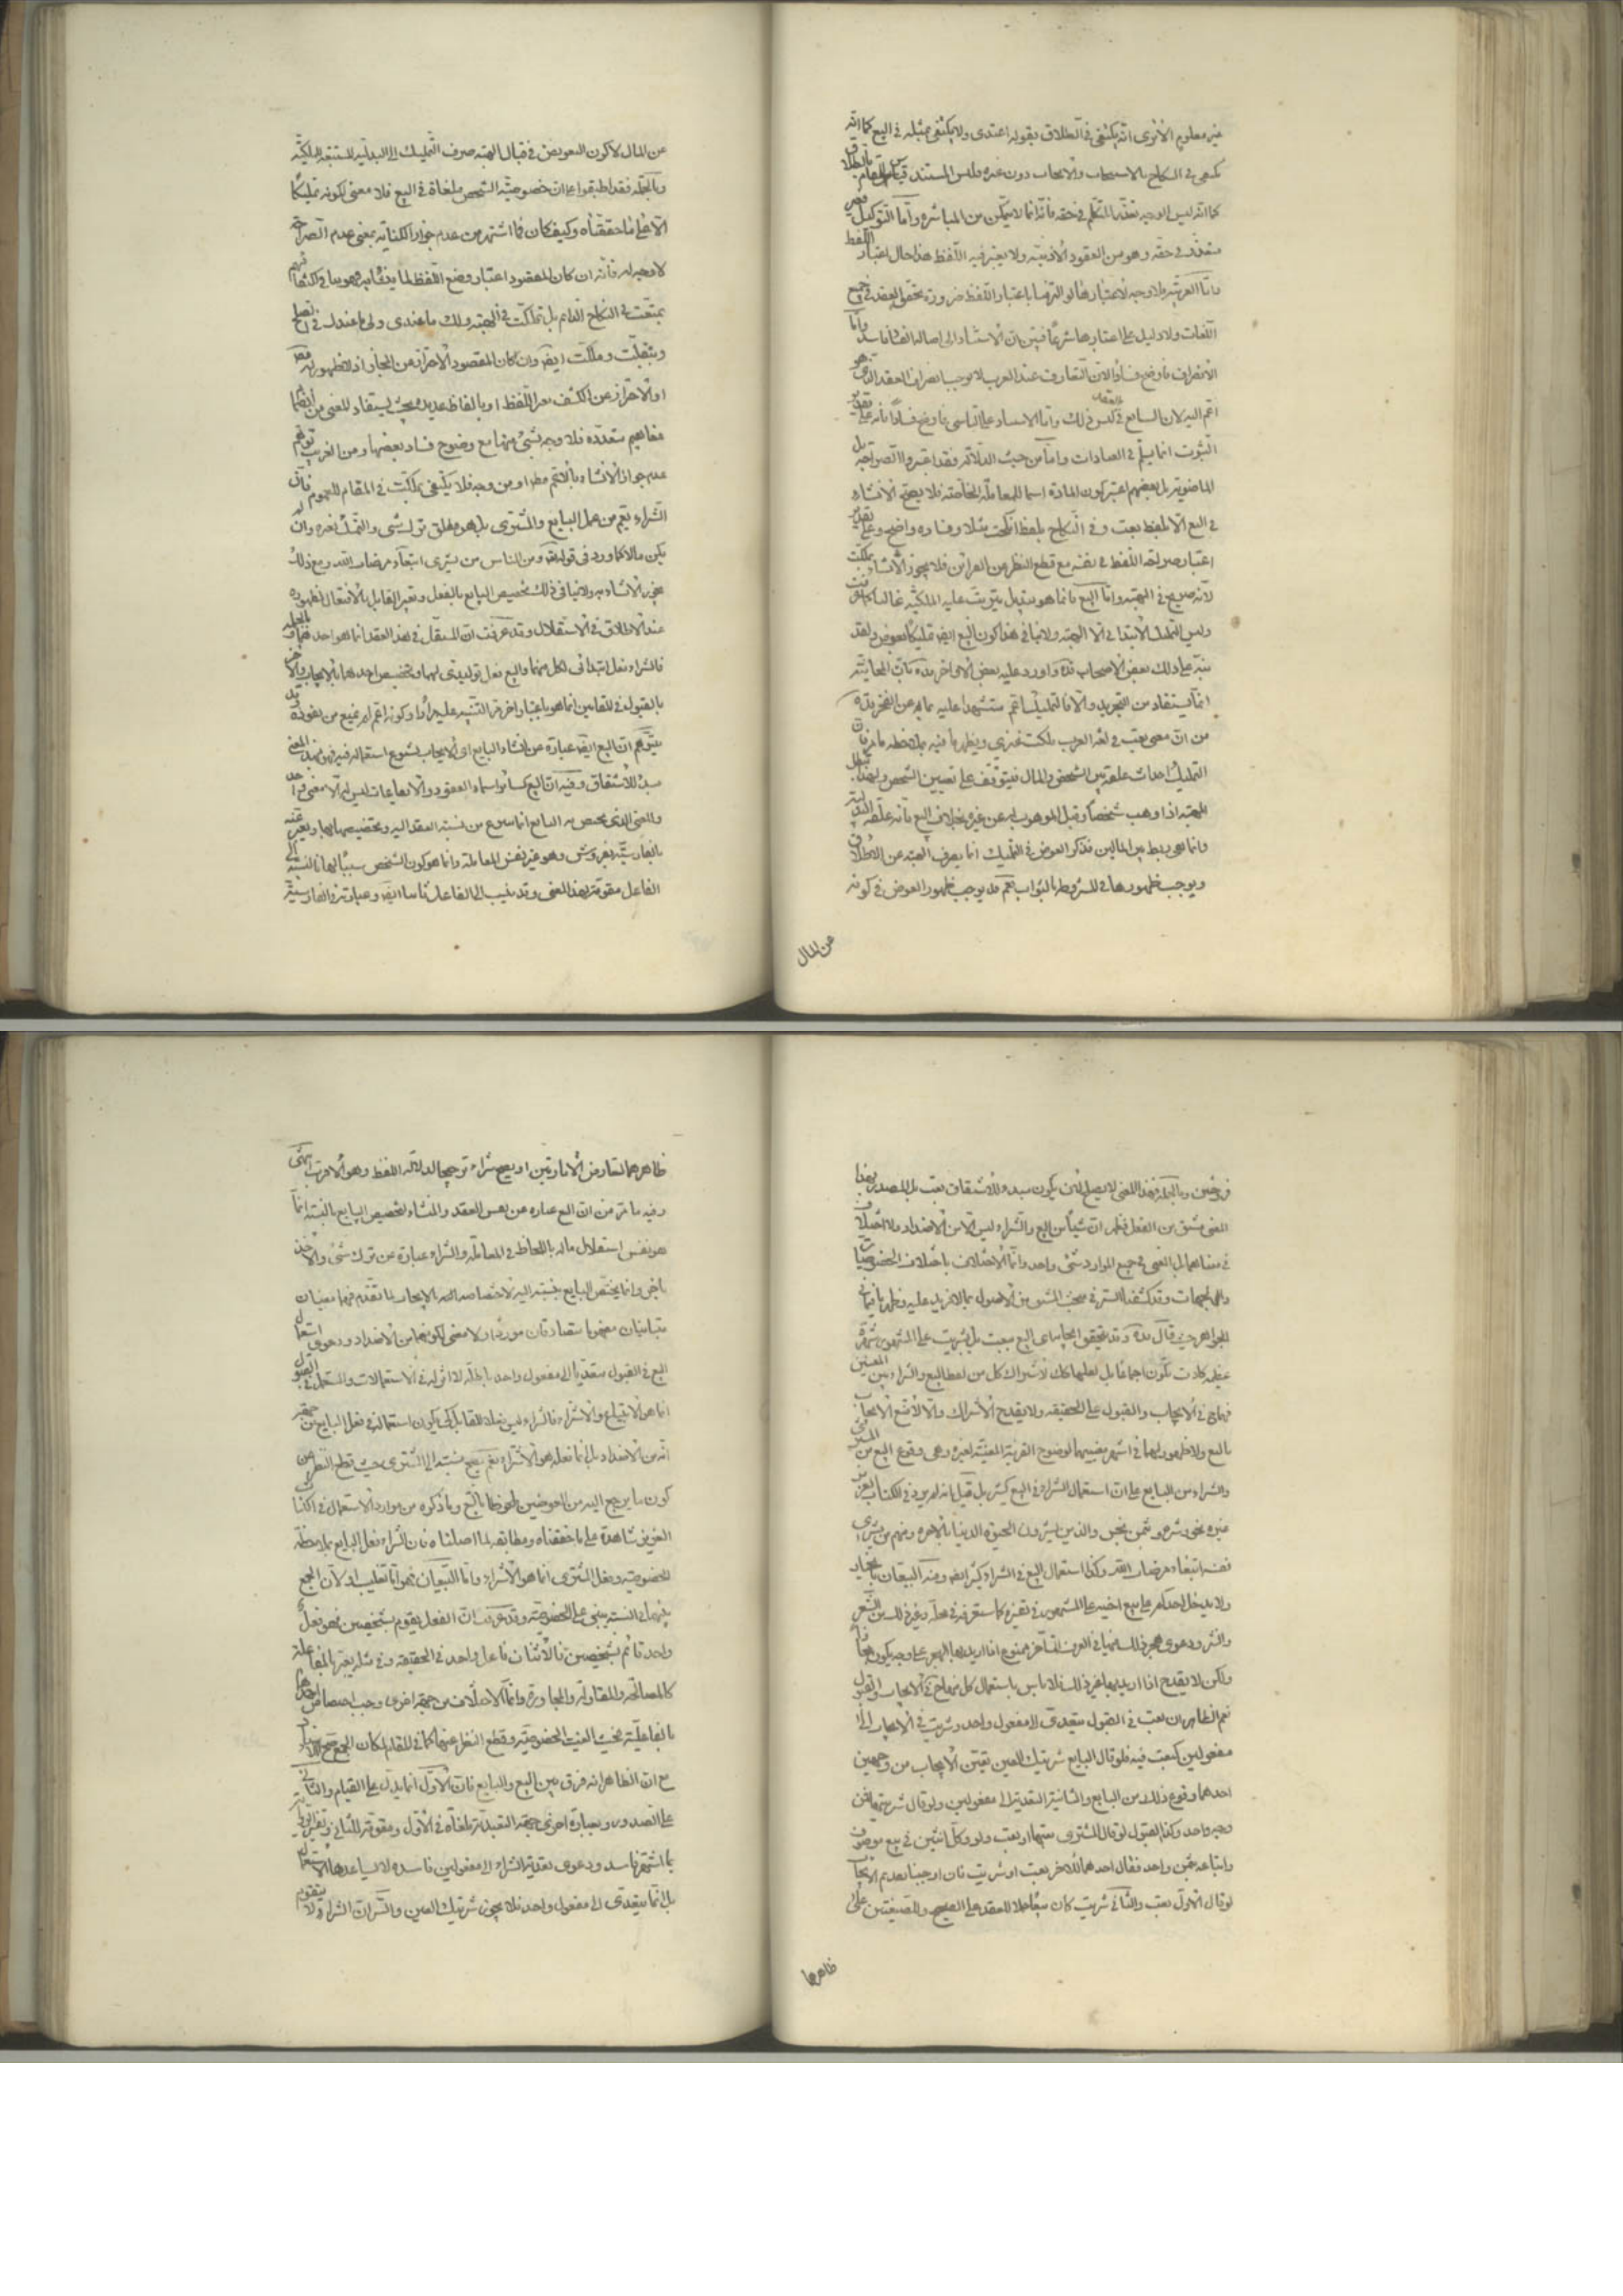 غير معلوم الا ترى انه يكتفى فى الطلاق بقوله اعتدى ولا يكتفى بمثله فى البيع كما انه
يكتفى فى النكاح بالاستيجاب والايجاب دون غيره وليس المستند قياس المقام بالطلاق
كما انه ليس الوجه تعذر التكلم فى حقه فانه انما لا يتمكن من المباشرة واما التوكيل فغير
متعذر فى حقه وهو من العقود الاذنية ولا يعتبر فيه اللفظ هذا حال اعتبار اللفظ
واما العربية فلا وجه لاعتبارها لو التزمنا باعتبار اللفظ ضرورة تحقق العقد فى جميع
اللغات ولا دليل على اعتبارها شرعا فتبين ان الاستناد الى اصالة الفساد فاسد واما
الانصراف فاوضح فسادا لان التعارف عند العرب لا يوجب انصراف العقد الذى هو
اعم اليه لان السامع فى عكس ذلك واما الاستناد على التاسى فاوضح فسادا فانه على تقدير
الثبوت انما يسلم فى العبادات واما من حيث الدلالة فقد اعتبروا الصراحة بل
الماضوية بل بعضهم اعتبر كون المادة اسما للمعاملة الخاصة فلا يصح الانشاء
فى البيع الا بلفظ بعت وفى النكاح بلفظ انكحت مثلا وفساده واضح وعلى تقدير
اعتبار صراحة اللفظ فى نفسه مع قطع النظر عن القرائن فلا يجوز الانشاء بملكت
لانه صريح فى الهبة واما البيع فانما هو تبديل يترتب عليه الملكية غالبا كما عرفت
وليس التمليك الابتدائى الا الهبة ولا ينافى هذا كون البيع ايضا تمليكا بعوض ولقد
نبه على ذلك بعض الاصحاب قده واورد عليه بعض الاواخر قده بان المجانية
انما يستفاد من التجريد والا فالتمليك اعم مستشهدا عليه بما مر عن الفخر قده
من ان معنى بعت فى لغة العرب ملكت غيرى ويظهر ما فيه بملاحظة ما مر فان
التمليك احداث علقة بين الشخص والمال فيتوقف على تعيين الشخص ولهذا تبطل
الهبة اذا وهب شخصا وقبل الموهوب له عن غيره بخلاف البيع فانه علقة البدلية
وانما هى ربط بين المالين فذكر العوض فى التمليك انما يصرف الهبة عن الاطلاق
ويوجب ظهورها فى المشروطة بالثواب نعم قد يوجب ظهور العوض فى كونه
عن المال
عن المال لا كون التعويض فى قبال الهبة صرف التمليك الى البدلية المستتبعة للملكية
وبالجملة فقد اطبقوا على ان خصوصية الشخص ملغاة فى البيع فلا معنى لكونه تمليكا
الا على ما حققناه وكيف كان فما اشتهر من عدم جواز الكناية بمعنى عدم الصراحة
لا وجه له فانه ان كان المقصود اعتبار وضع اللفظ لما يتفاهم به
بمتعت فى النكاح الدائم بل بملكت فى الهبة ولك ما عندى ولى ما عندك فى الصلح
وبتقبلت وملكت ايضا وان كان المقصود الاحتراز عن المجاز اذا لا ظهور له
او الاحتراز عن الكشف بغير اللفظ او بالفاظ عديدة بحيث يستفاد المعنى من انضمام
مفاهيم متعددة فلا وجه لشئ منها مع وضوح فساد بعضها ومن الغريب توهم
عدم جواز الانشاء بالاعم مطلقا او من وجه فلا يكتفى بملكت فى المقام للعموم فان
الشراء يعم من عمل البايع والمشترى بل هو مطلق ترك شئ والتمسك بغيره وان لم
يكن مالا كما ورد فى قوله تعالى ومن الناس من يشرى نفسه ابتغاء مرضات الله ومع ذلك
يجوز الانشاء به ولا ينافى ذلك تخصيص البايع بالفعل وتعبير القابل بالافتعال لظهوره
عند الاطلاق فى الاستقلال وقد عرفت ان المستقل فى هذا العقد انما هو احدهما وبالجملة
فالشراء فعل ابتدائى لكل منهما والبيع فعل توليدى لهما وتخصيص احدهما بالايجاب والاخر
بالقبول فى المقامين انما هو باعتبار اخر مر التنبيه عليه مرارا وكونه اعم لم يمنع من نفوذه وقد
يتوهم ان البيع ايضا عبارة عن انشاء البايع اى الايجاب لشيوع استعماله فيه فهو بهذا المعنى
مبدء للاشتقاق وفيه ان البيع كسائر اسماء العقود والايقاعات ليس له الا معنى واحد
والمعنى الذى يختص به البايع انما ينتزع من نسبة العقد اليه وتخصيصها بها ويعبر عنه
بالفارسية بفروش وهو غير نفس المعاملة وانما هو كون الشخص سببا لها فالنسبة الى
الفاعل مقومة لهذا المعنى وقد ينسب الى الفاعل ايضا وعبارته بالفارسية
فروختن وبالجملة فهذا المعنى لا يصلح لان يكون مبدء للاشتقاق بعت بل المصدر بهذا
المعنى مشتق من الفعل فظهر ان شيئا من البيع والشراء ليس الا من الاضداد ولا اختلاف
فى معناهما بل المعنى فى جميع الموارد شئ واحد وانما الاختلاف باختلاف الخصوصيات
والجهات وقد كشفنا الستر فى مبحث المشتق من الاصول بما لا مزيد عليه فظهر ما فيما فى
الجواهر حيث قال قده وقد يتحقق ايجاب البيع ببعت بل بشريت على المشهور شهرة
عظيمة كادت تكون اجماعا بل لعلها كك لاشتراك كل من لفظ البيع والشراء بين المعنيين
فهما فى الايجاب والقبول على الحقيقة ولا يقدح الاشتراك والا لامتنع الايجاب
بالبيع ولا ظهور لهما فى اشهر معنييهما لوضوح القرينة المعينة لغيره وهى وقوع البيع من المشترى
والشراء من البايع على ان استعمال الشراء فى البيع كثير بل قيل انه لم يرد فى الكتاب العزيز
غيره نحو وشروه بثمن بخس والذين يشرون الحيوة الدنيا بالاخرة ومنهم من يشرى
نفسه ابتغاء مرضات الله وكذا استعمال البيع فى الشراء كثير ايضا ومنه البيعان بالخيار
ولا يدخل احدكم على بيع اخيه على المشهور فى تفسيره كما ستعرفه فى محله وغيره فى السن الشعر
والنثر ودعوى هجر ذلك فيهما فى العرف المتأخر ممنوع اذا اريد بها الهجر على وجه يكون مجازا
ولكن لا يقدح اذا اريد بها غير ذلك فلا باس باستعمال كل منهما فى الايجاب والقبول
نعم الظاهر ان بعت فى القبول متعدى الى مفعول واحد وشريت فى الايجاب الى
مفعولين كبعت فيه فلو قال البايع شريتك العين تعين الايجاب من وجهين
احدهما وقوع ذلك من البايع والثانية التعدية الى مفعولين ولو قال شريت فمن
وجه واحد وكذا القبول لو قال المشترى بعت ولو وكل اثنين فى بيع موصوف
وابتاعه بثمن واحد فقال احدهما للاخر بعت او شريت فان اوجبنا تقديم الايجاب
لو قال الاول بعت والثانى شريت كان بيعا حملا للعقد على الصحيح وللصيغتين على
ظاهرهما
ظاهرهما لتعارض الامارتين او يصح شراء ترجيحا لدلالة اللفظ وهو الاقرب انتهى
وفيه ما مر من ان البيع عبارة عن نفس العقد والمنشاء لتخصيص البايع بالنسبة انما
هو نفس استقلال ماله باللحاظ فى المعاملة والشراء عبارة عن ترك شئ والاخذ
باخر وانما يختص البايع بنسبته اليه لاختصاصه بالايجاب بما تقدم فهما معنيان
متباينان مفهوما متصادقان موردا ولا معنى لكونهما من الاضداد ودعوى استعمال
البيع فى القبول متعديا الى مفعول واحد باطلة لا اثر له فى الاستعمالات والمستعمل فى القبول
انما هو الابتياع والاشتراء فالشراء ليس فعلا للقابل كى يكون استعماله فى فعل البايع من جهة
انه من الاضداد بل انما فعله هو الاشتراء نعم يصح نسبته الى المشترى حيث قطع النظر عن
كون ما يرجع اليه من العوضين ملحوظا بالتبع وما ذكره من موارد الاستعمال فى الكتاب
العزيز شاهدة على ما حققناه ومطابقة لما اصلناه فان الشراء فعل البايع بملاحظة
الخصوصية وفعل المشترى انما هو الاشتراء واما البيعان فهو اما تغليب او لان الجمع
بينهما فى النسبة يبنى على الخصوصية وقد عرفت ان الفعل يقوم بشخصين فهو فعل
واحد قائم بشخصين فالاثنان فاعل واحد فى الحقيقة وفى مثله يعبر بالمفاعلة
كالمصالحة والمقاولة والمجاورة وانما الاختلاف من جهة اخرى وجب اختصاص احدهما
بالفاعلية فحيث الغيت الخصوصية وقطع النظر عنها كما فى المقام لكان الجمع صحيحا
مع ان الظاهر انه فرق بين البيع والبايع فان الاول انما يدل على القيام والثانى
على الصدور وبعبارة اخرى جهة التعدية ملغاة فى الاول ومقومة للثانى وتفسير البيع
بما اشتهر فاسد ودعوى تعدية الشراء الى مفعولين فاسدة لا يساعدها الاستعمال
بل انما يتعدى الى مفعول واحد فلا يجوز شريتك العين والسر ان الشراء لا يتقوم